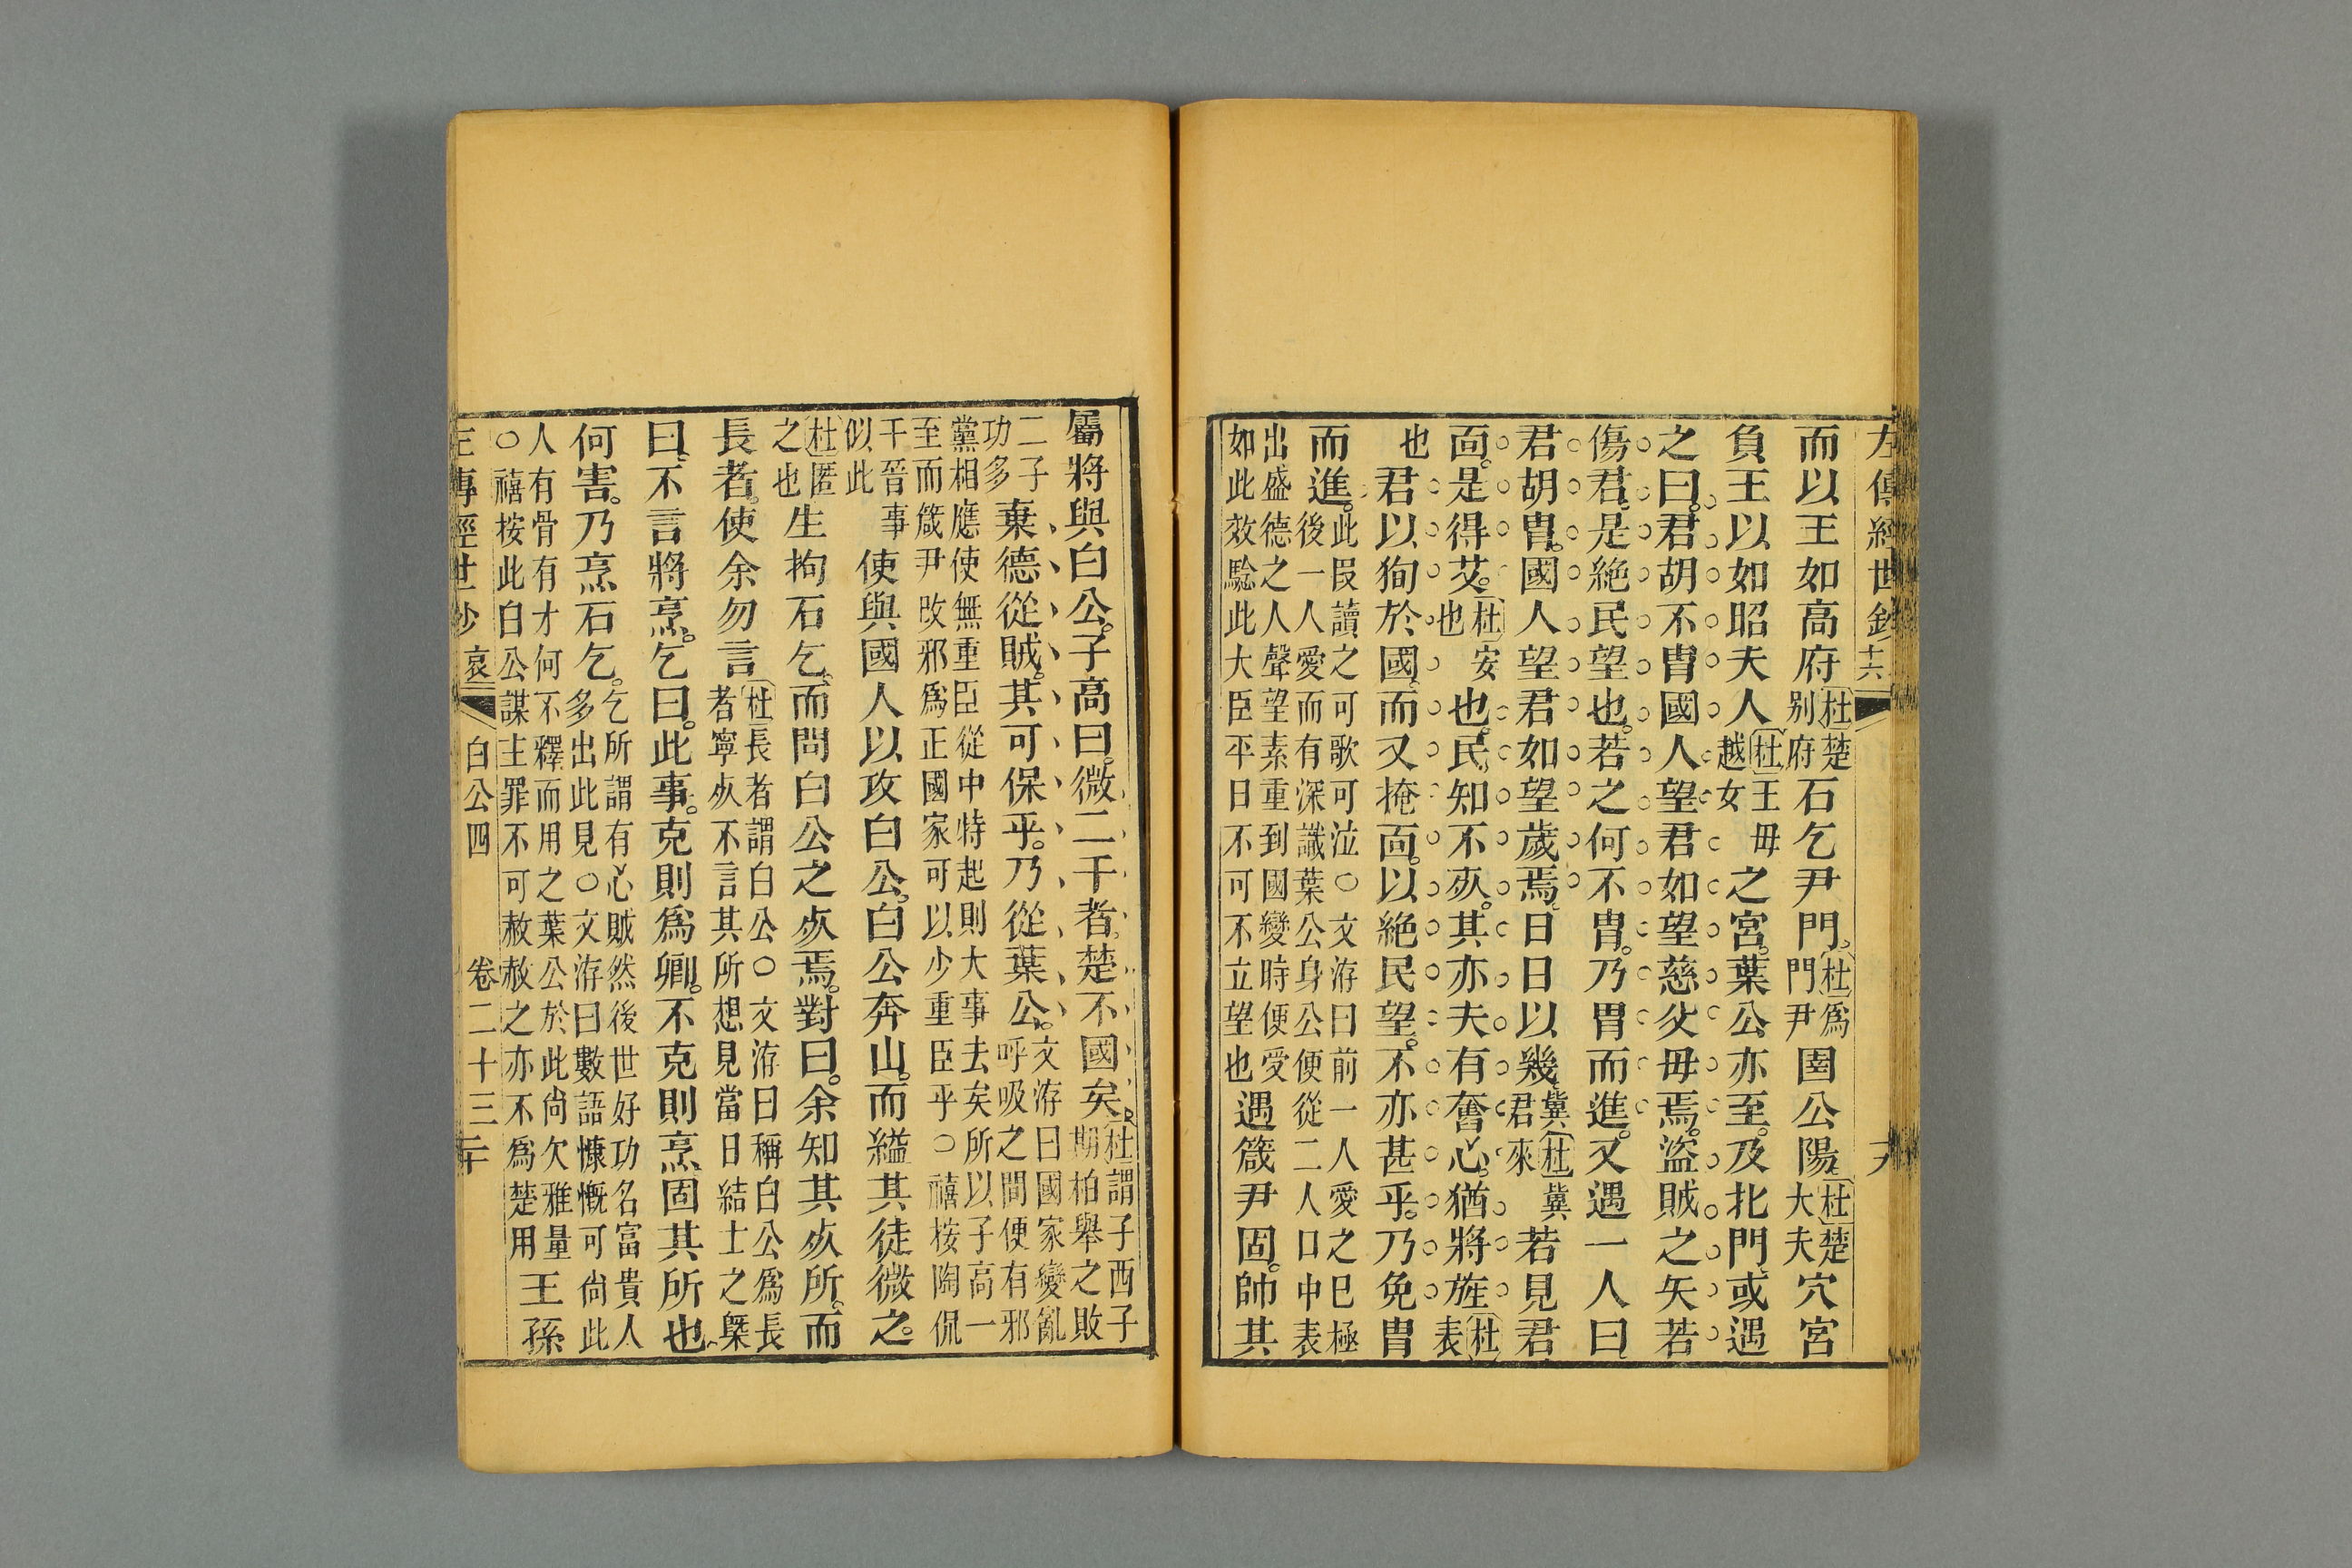 左傳經世鈔 十六
而以王如高府〔杜〕楚別府石乞尹門。〔杜〕爲門尹圉公陽〔杜〕楚大夫穴宮
負王以如昭夫人〔杜〕王母越女之宮。葉公亦至。及北門。或遇
之曰。君胡不胄。國人望君如望慈父母焉。盜賊之矢若
傷君。是絶民望也。若之何不胄。乃胄而進。又遇一人曰
君胡胄。國人望君如望歲焉。日日以幾。冀〔杜〕冀君來若見君
面。是得艾。〔杜〕安也也。民知不死。其亦夫有奮心。猶將旌〔杜〕表
也君以狥於國。而又掩面。以絶民望。不亦甚乎。乃免胄
而進。此叚讀之可歌可泣○文洊曰前一人愛之巳極
後一人愛而有深識葉公身公便從二人口中表
出盛德之人聲望素重到國變時便受
如此效驗此大臣平日不可不立望也遇箴尹固。帥其
屬將與白公。子高曰。微二子者。楚不國矣。〔杜〕謂子西子
期柏舉之敗
二子
功多棄德從賊。其可保乎。乃從葉公。文洊曰國家變亂
呼吸之間便有邪
黨相應使無重臣從中特起則大事去矣所以子高一
至而箴尹改邪爲正國家可以少重臣乎○禧按陶侃
干晉事
似此使與國人以攻白公。白公奔山。而縊其徒微之。
〔杜〕匿
之也生拘石乞。而問白公之死焉。對曰。余知其死所。而
長者。使余勿言〔杜〕長者謂白公○文洊曰稱白公爲長
者寧死不言其所想見當日結士之槩
曰。不言將烹。乞曰。此事。克則爲卿。不克則烹固其所也
何害。乃烹石乞。乞所謂有心賊然後世好功名富貴人
多出此見○文洊曰數語慷慨可尙此
人有骨有才何不釋而用之葉公於此尙欠雅量
○禧按此白公謀主罪不可赦赦之亦不爲楚用王孫
左傳經世鈔 哀二 白公四 卷二十三 二十